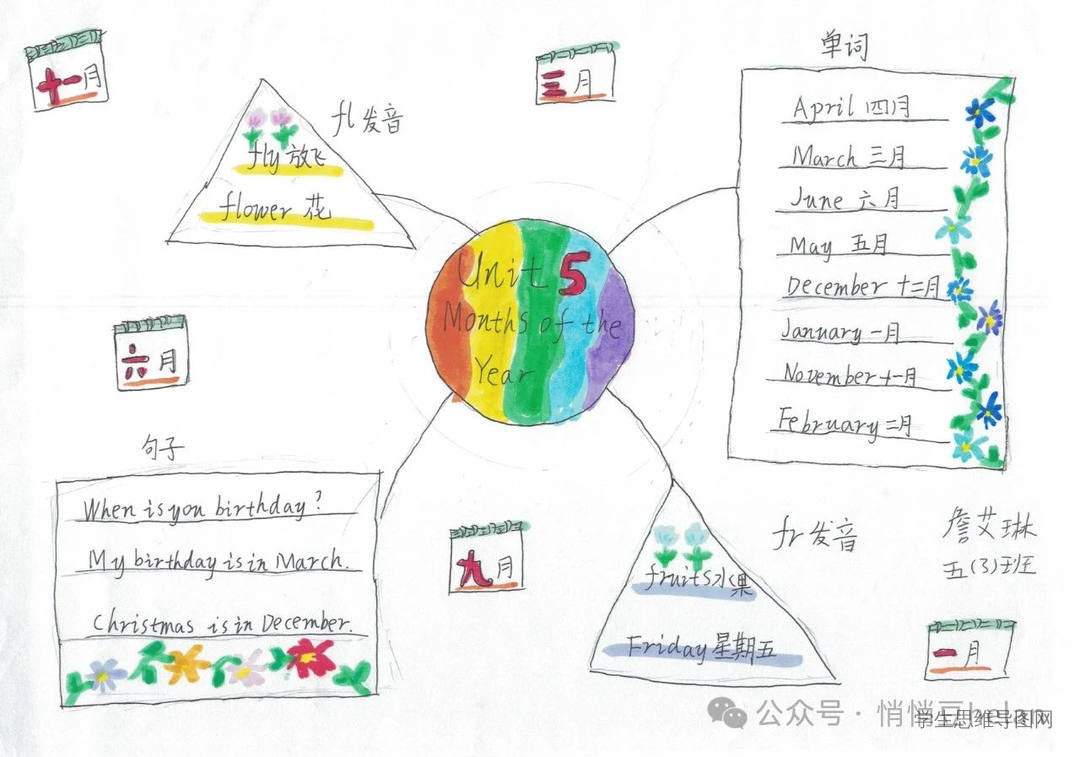 十一月
三月
单词
fl 发音
fly 放飞
flower 花
April 四月
March 三月
June 六月
May 五月
December 十二月
January 一月
November 十一月
February 二月
Unit 5
Months of the
Year
六月
句子
When is you birthday?
My birthday is in March.
Christmas is in December.
九月
fr 发音
fruits 水果
Friday 星期五
詹艾琳
五(3)班
一月
公众号 · 悄悄豆
学生思维导图网